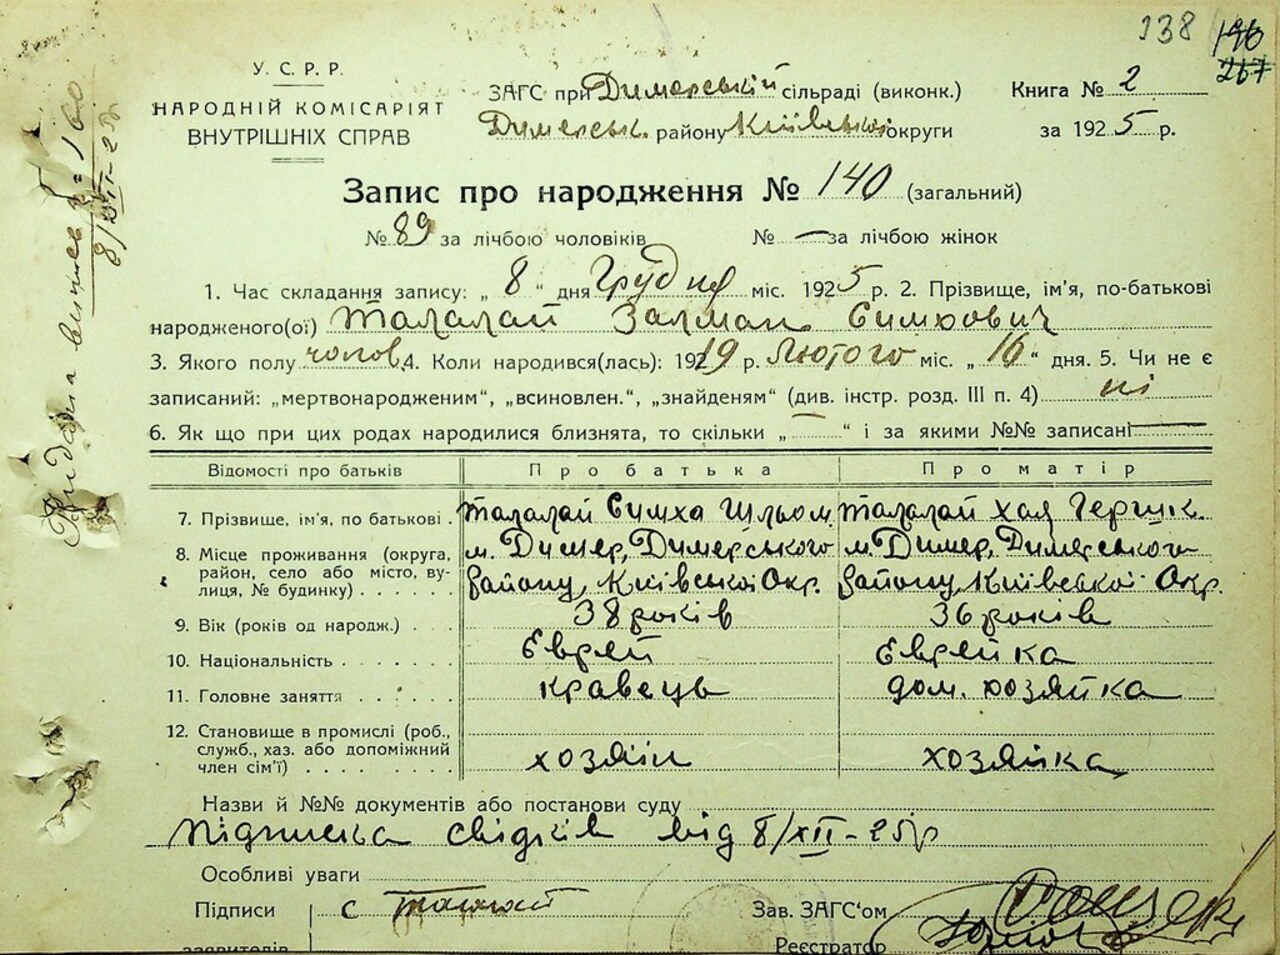 138 196
267
У. С. Р. Р.
НАРОДНІЙ КОМІСАРІЯТ
ВНУТРІШНІХ СПРАВ
ЗАГС при Димерській сільраді (виконк.)
Димерськ. району Київської округи
Книга № 2
за 1925 р.
Запис про народження № 140 (загальний)
№ 89 за лічбою чоловіків № — за лічбою жінок
1. Час складання запису: „ 8 “ дня Грудня міс. 1925 р. 2. Прізвище, ім'я, по-батькові
народженого(ої) Талалай Залман Симхович
3. Якого полу чолов. 4. Коли народився(лась): 1919 р. Лютого міс. „ 16 “ дня. 5. Чи не є
записаний: „мертвонародженим“, „всиновлен.“, „знайденям“ (див. інстр. розд. III п. 4) ні
6. Як що при цих родах народилися близнята, то скільки „ — “ і за якими №№ записані —
Відомості про батьків Про батька Про матір
7. Прізвище, ім'я, по батькові . Талалай Симха Шльом. Талалай Хая Гершк.
8. Місце проживання (округа, м. Димер, Димерського м. Димер, Димерського
район, село або місто, ву-
лиця, № будинку) . . . . . . району, Київської Окр. району, Київської Окр.
9. Вік (років од народж.) . . 38 років 36 років
10. Національність . . . . . . . Еврей Еврейка
11. Головне заняття . . . . кравець дом. хозяйка
12. Становище в промислі (роб.,
служб., хаз. або допоміжний
член сім'ї) . . . . . . . . . хозяїн хозяйка
Назви й №№ документів або постанови суду
підписка свідків від 8/XII-25р
Особливі уваги
Підписи С Талалай Зав. ЗАГС'ом
заявителів Реєстратор
8/XII-25р